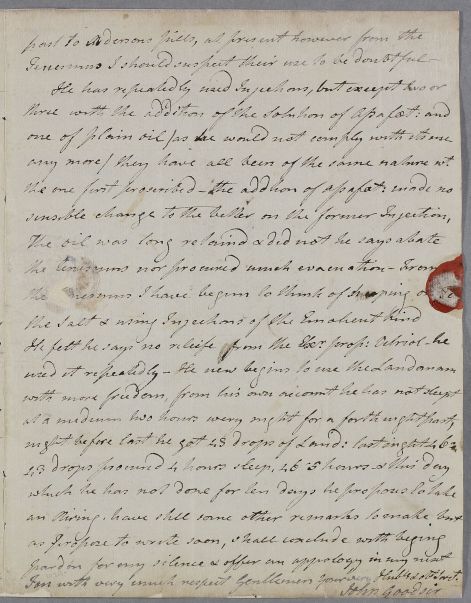 past to Andersons pills, at present however from the
Tenesmus I should suspect their use to be doubtful -
He has repeatedly used Injections, but except two or
three with the addition of the Solution of Asafœt: and
one of plain oil /as he would not comply with its use
any more/ they have all been of the same nature wt
the one first prescribed - the addition of asafœt: made no
sensible change to the better on the former Injection,
the oil was long retaind & did not he says abate
the tenesmus nor procured much evacuation - From
the Tenesmus I have begun to think of dropping
the Salt & using Injections of the Emolient kind
He felt he says no releife from the Elix: prop: vitriol. he
used it repeatedly - He now begins to use the Laudanum
with more freedom, from his own account he has not slept
at a medium two hours every night for a fortnight past,
night before last he got 43 drops of Laud: last night 46
43 drops procured 4 hours sleep, 46 5 hours & this day
which he has not done for ten days he proposes to take
an Airing. have still some other remarks to make but
as I propose to write soon, shall conclude with beging
pardon for my silence & offer an appology in my next
I am with very much respect Gentlemen your very Humb: &
John Goodsir